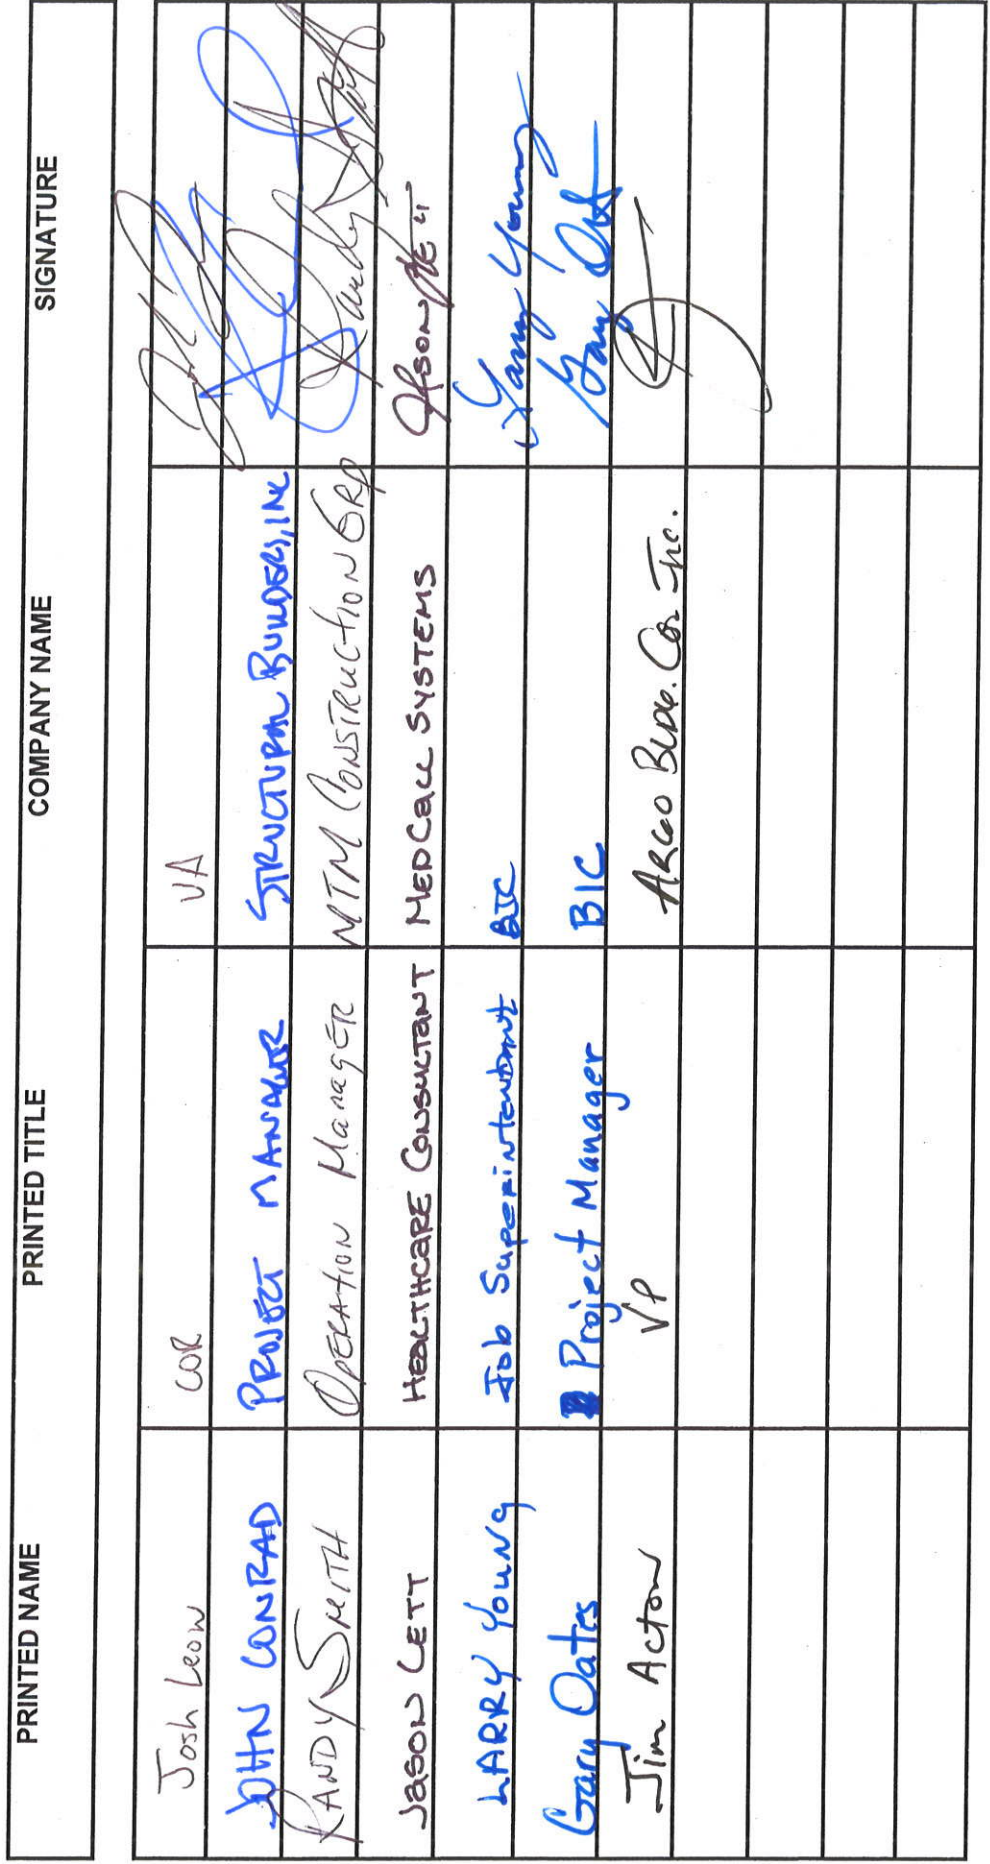 PRINTED NAME PRINTED TITLE COMPANY NAME SIGNATURE
Josh Leow COR VA
JOHN CONRAD PROJECT MANAGER STRUCTURAL BUILDERS, INC
RANDY SMITH OPERATION Manager MTM CONSTRUCTION GRP Randy Smith
JASON LETT HEALTHCARE CONSULTANT MEDCALL SYSTEMS JASON LETT
LARRY YOUNG Job Superintendant BIC Larry Young
Gary Oates Project Manager BIC Gary Oates
Jim Acton VP ARGO BLDG. Co. Inc.